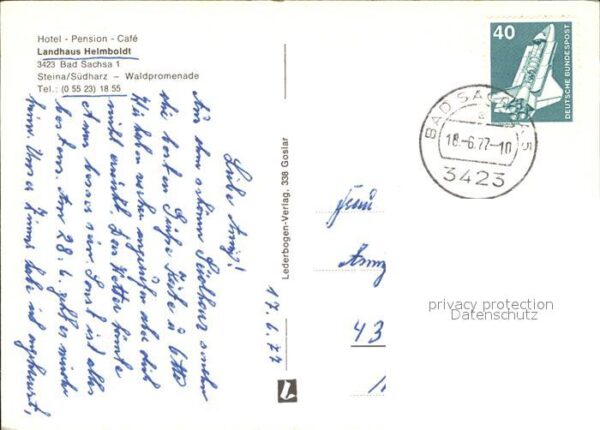 Hotel - Pension - Café
Landhaus Helmboldt
3423 Bad Sachsa 1
Steina/Südharz – Waldpromenade
Tel.: (0 55 23) 18 55
17.6.77
Liebe Anny!
Aus dem schönen Südharz senden
die besten Grüße Käthe u. Otto
Wir haben vorher angerufen aber dich
nicht erreicht. Das Wetter könnte
etwas besser sein. Sonst ist alles
bestens. Am 28.6. geht es wieder
heim. Unser Zimmer habe ich angekreuzt,
Lederbogen-Verlag, 338 Goslar
40
DEUTSCHE BUNDESPOST
BAD SACHSA
a
18.-6.77.-10
3423
Frau
Anny
43
privacy protection
Datenschutz